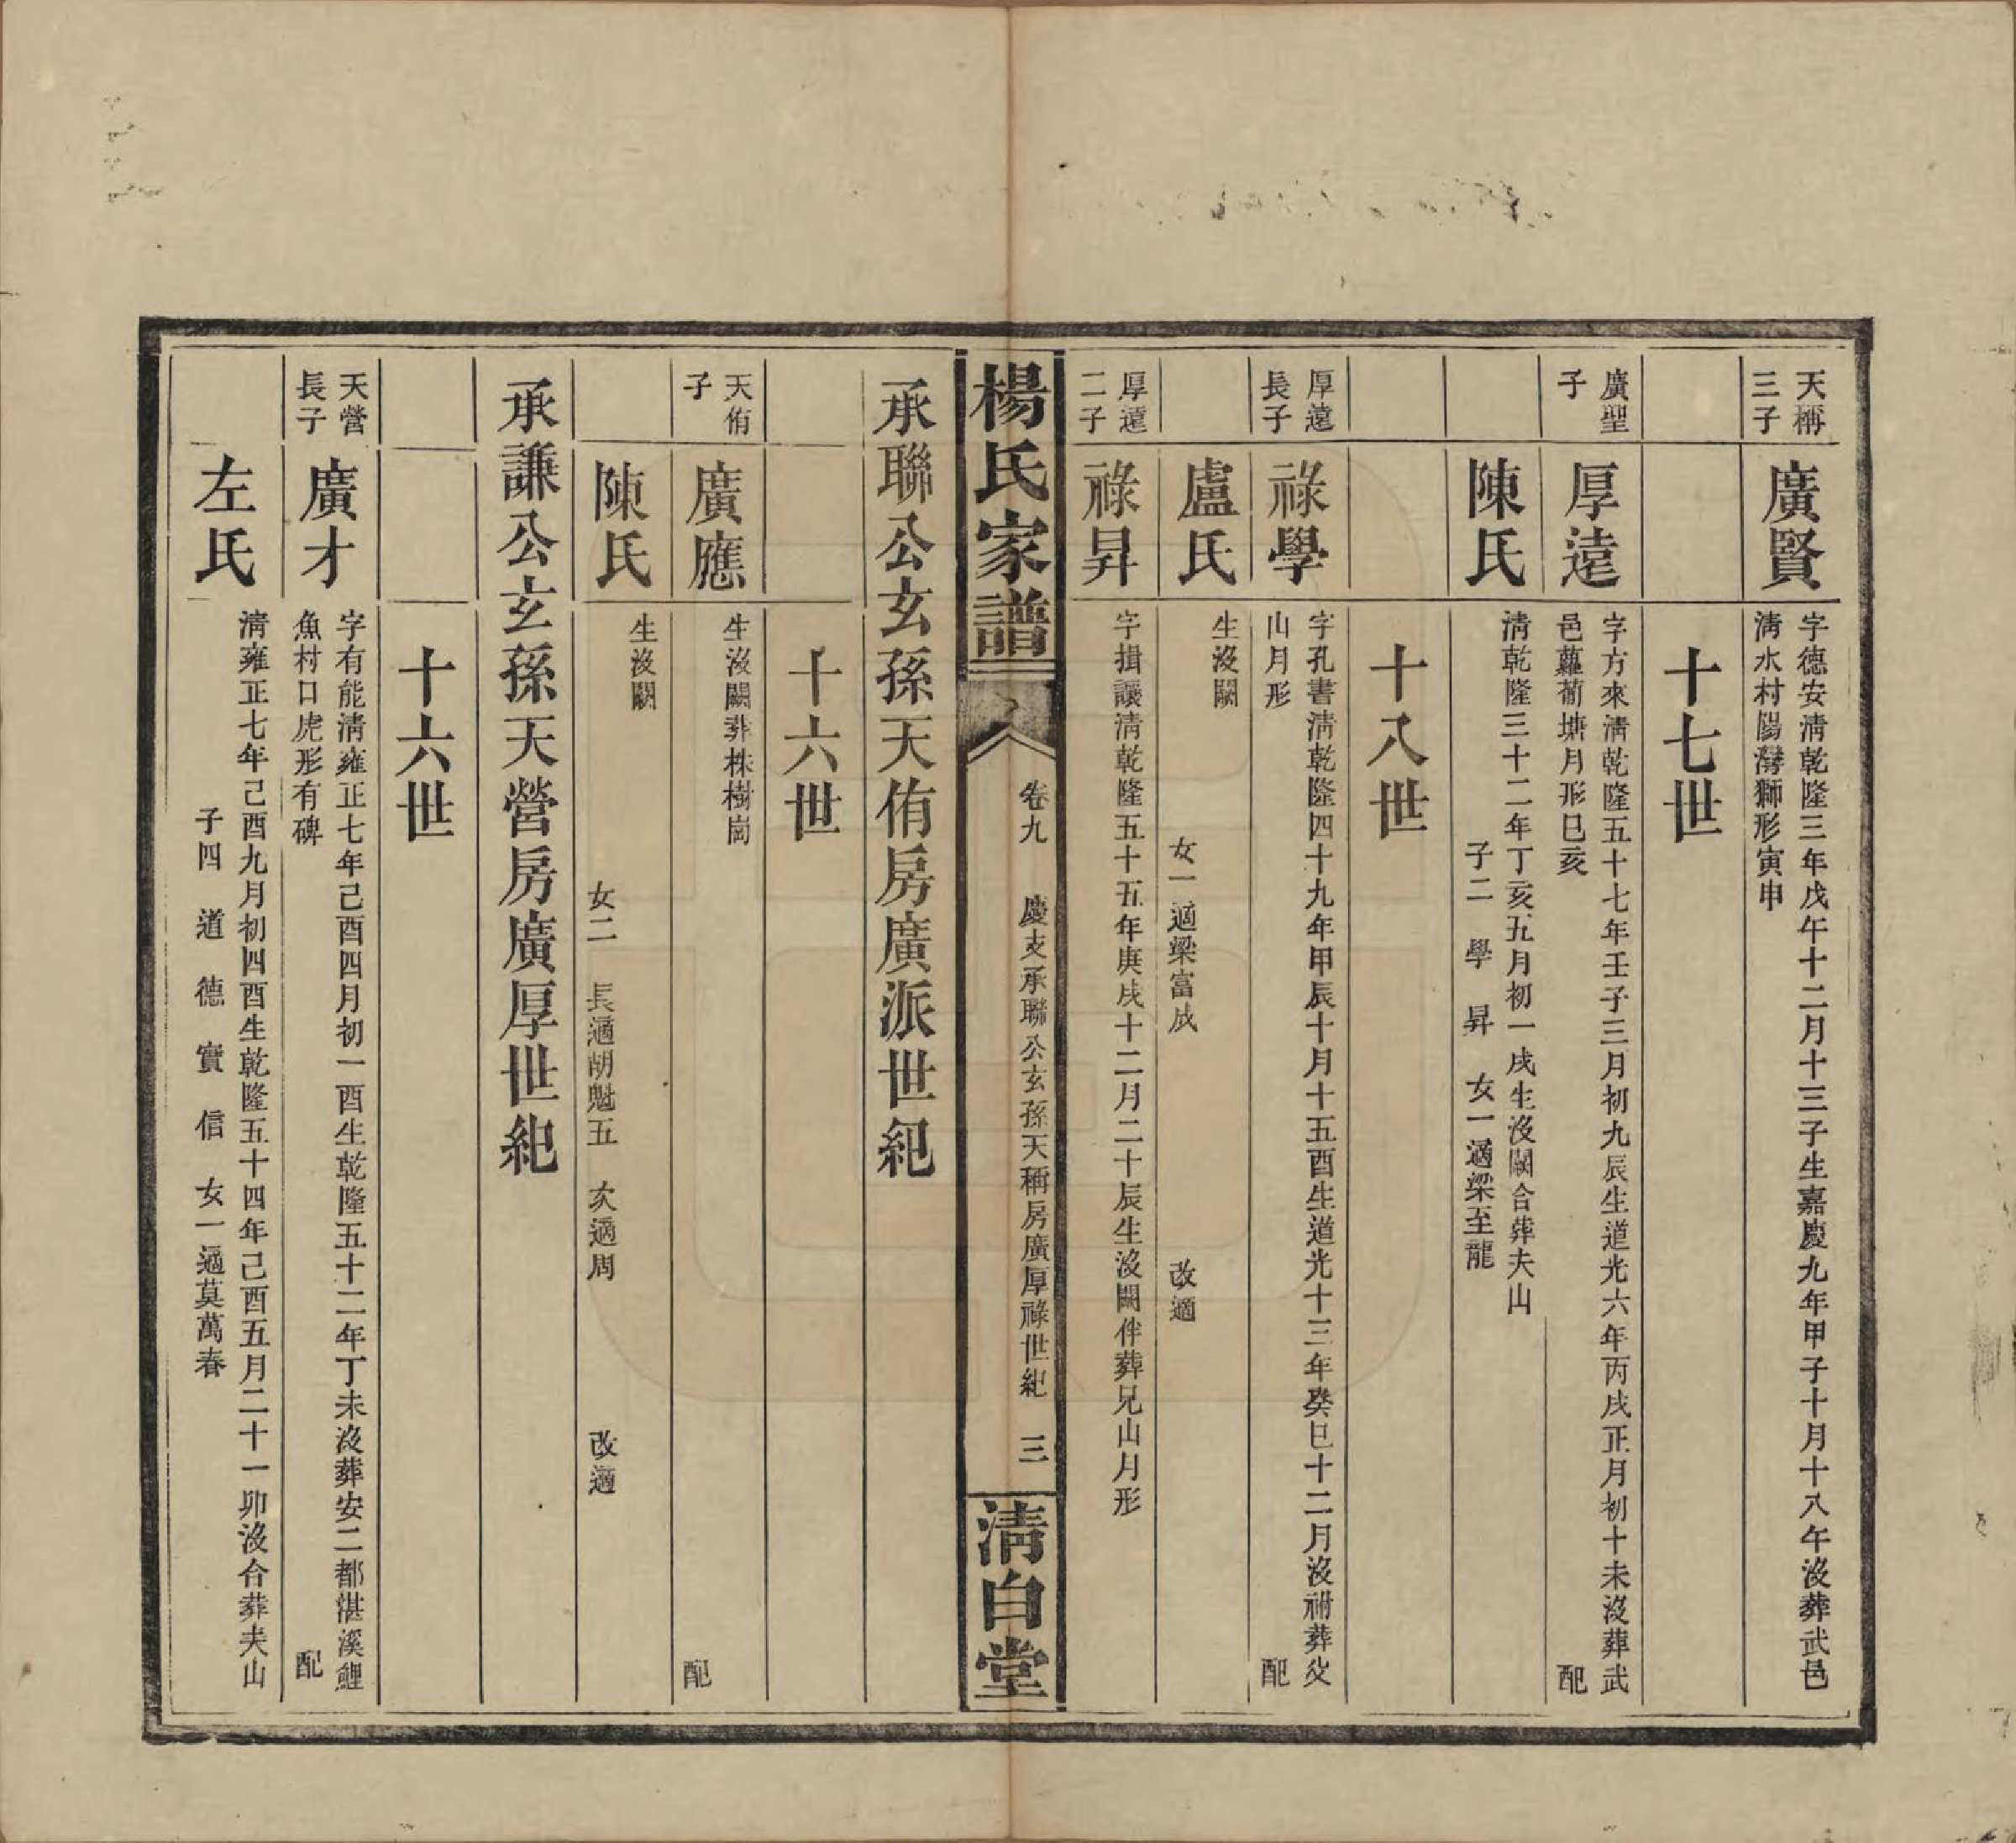 天稱
三子
廣賢
字德安清乾隆三年戊午十二月十三子生嘉慶九年甲子十月十八午沒葬武邑
清水村陽灣獅形寅申
十七世
廣聖
子
厚遠
字方來清乾隆五十七年壬子三月初九辰生道光六年丙戌正月初十未沒葬武
邑蘿蔔塘月形巳亥
配
陳氏
清乾隆三十二年丁亥五月初一戌生沒闕合葬夫山
子二 學 昇 女一適梁至龍
十八世
厚遠
長子
祿學
字孔書清乾隆四十九年甲辰十月十五酉生道光十三年癸巳十二月沒祔葬父
山月形
配
盧氏
生沒闕
女一適梁富成
改適
厚遠
二子
祿昇
字揖讓清乾隆五十五年庚戌十二月二十辰生沒闕伴葬兄山月形
楊氏家譜
卷九
慶支承聯公玄孫天稱房廣厚祿世紀
三
清白堂
承聯公玄孫天侑房廣派世紀
十六世
天侑
子
廣應
生沒闕葬株樹崗
配
陳氏
生沒闕
女二 長適胡魁五 次適周
改適
承謙公玄孫天營房廣厚世紀
十六世
天營
長子
廣才
字有能清雍正七年己酉四月初一酉生乾隆五十二年丁未沒葬安二都湛溪鯉
魚村口虎形有碑
配
左氏
清雍正七年己酉九月初四酉生乾隆五十四年己酉五月二十一卯沒合葬夫山
子四 道 德 實 信 女一適莫萬春